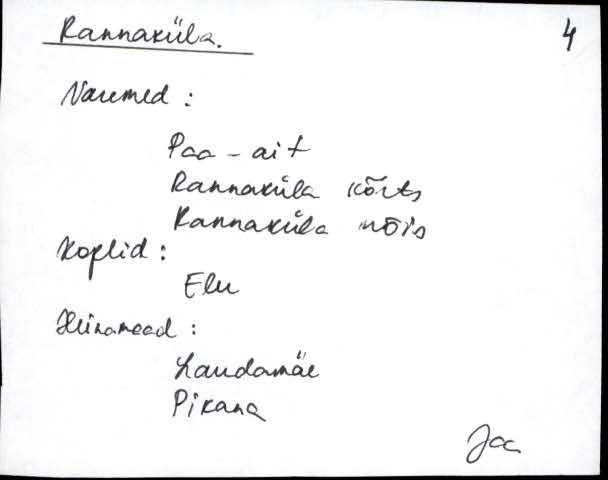 Rannaküla.
4
Varemed :
Paa - ait
Rannaküla kõrts
Rannaküla mõis
Koplid :
Elu
Heinamaad :
Laudamäe
Pikana